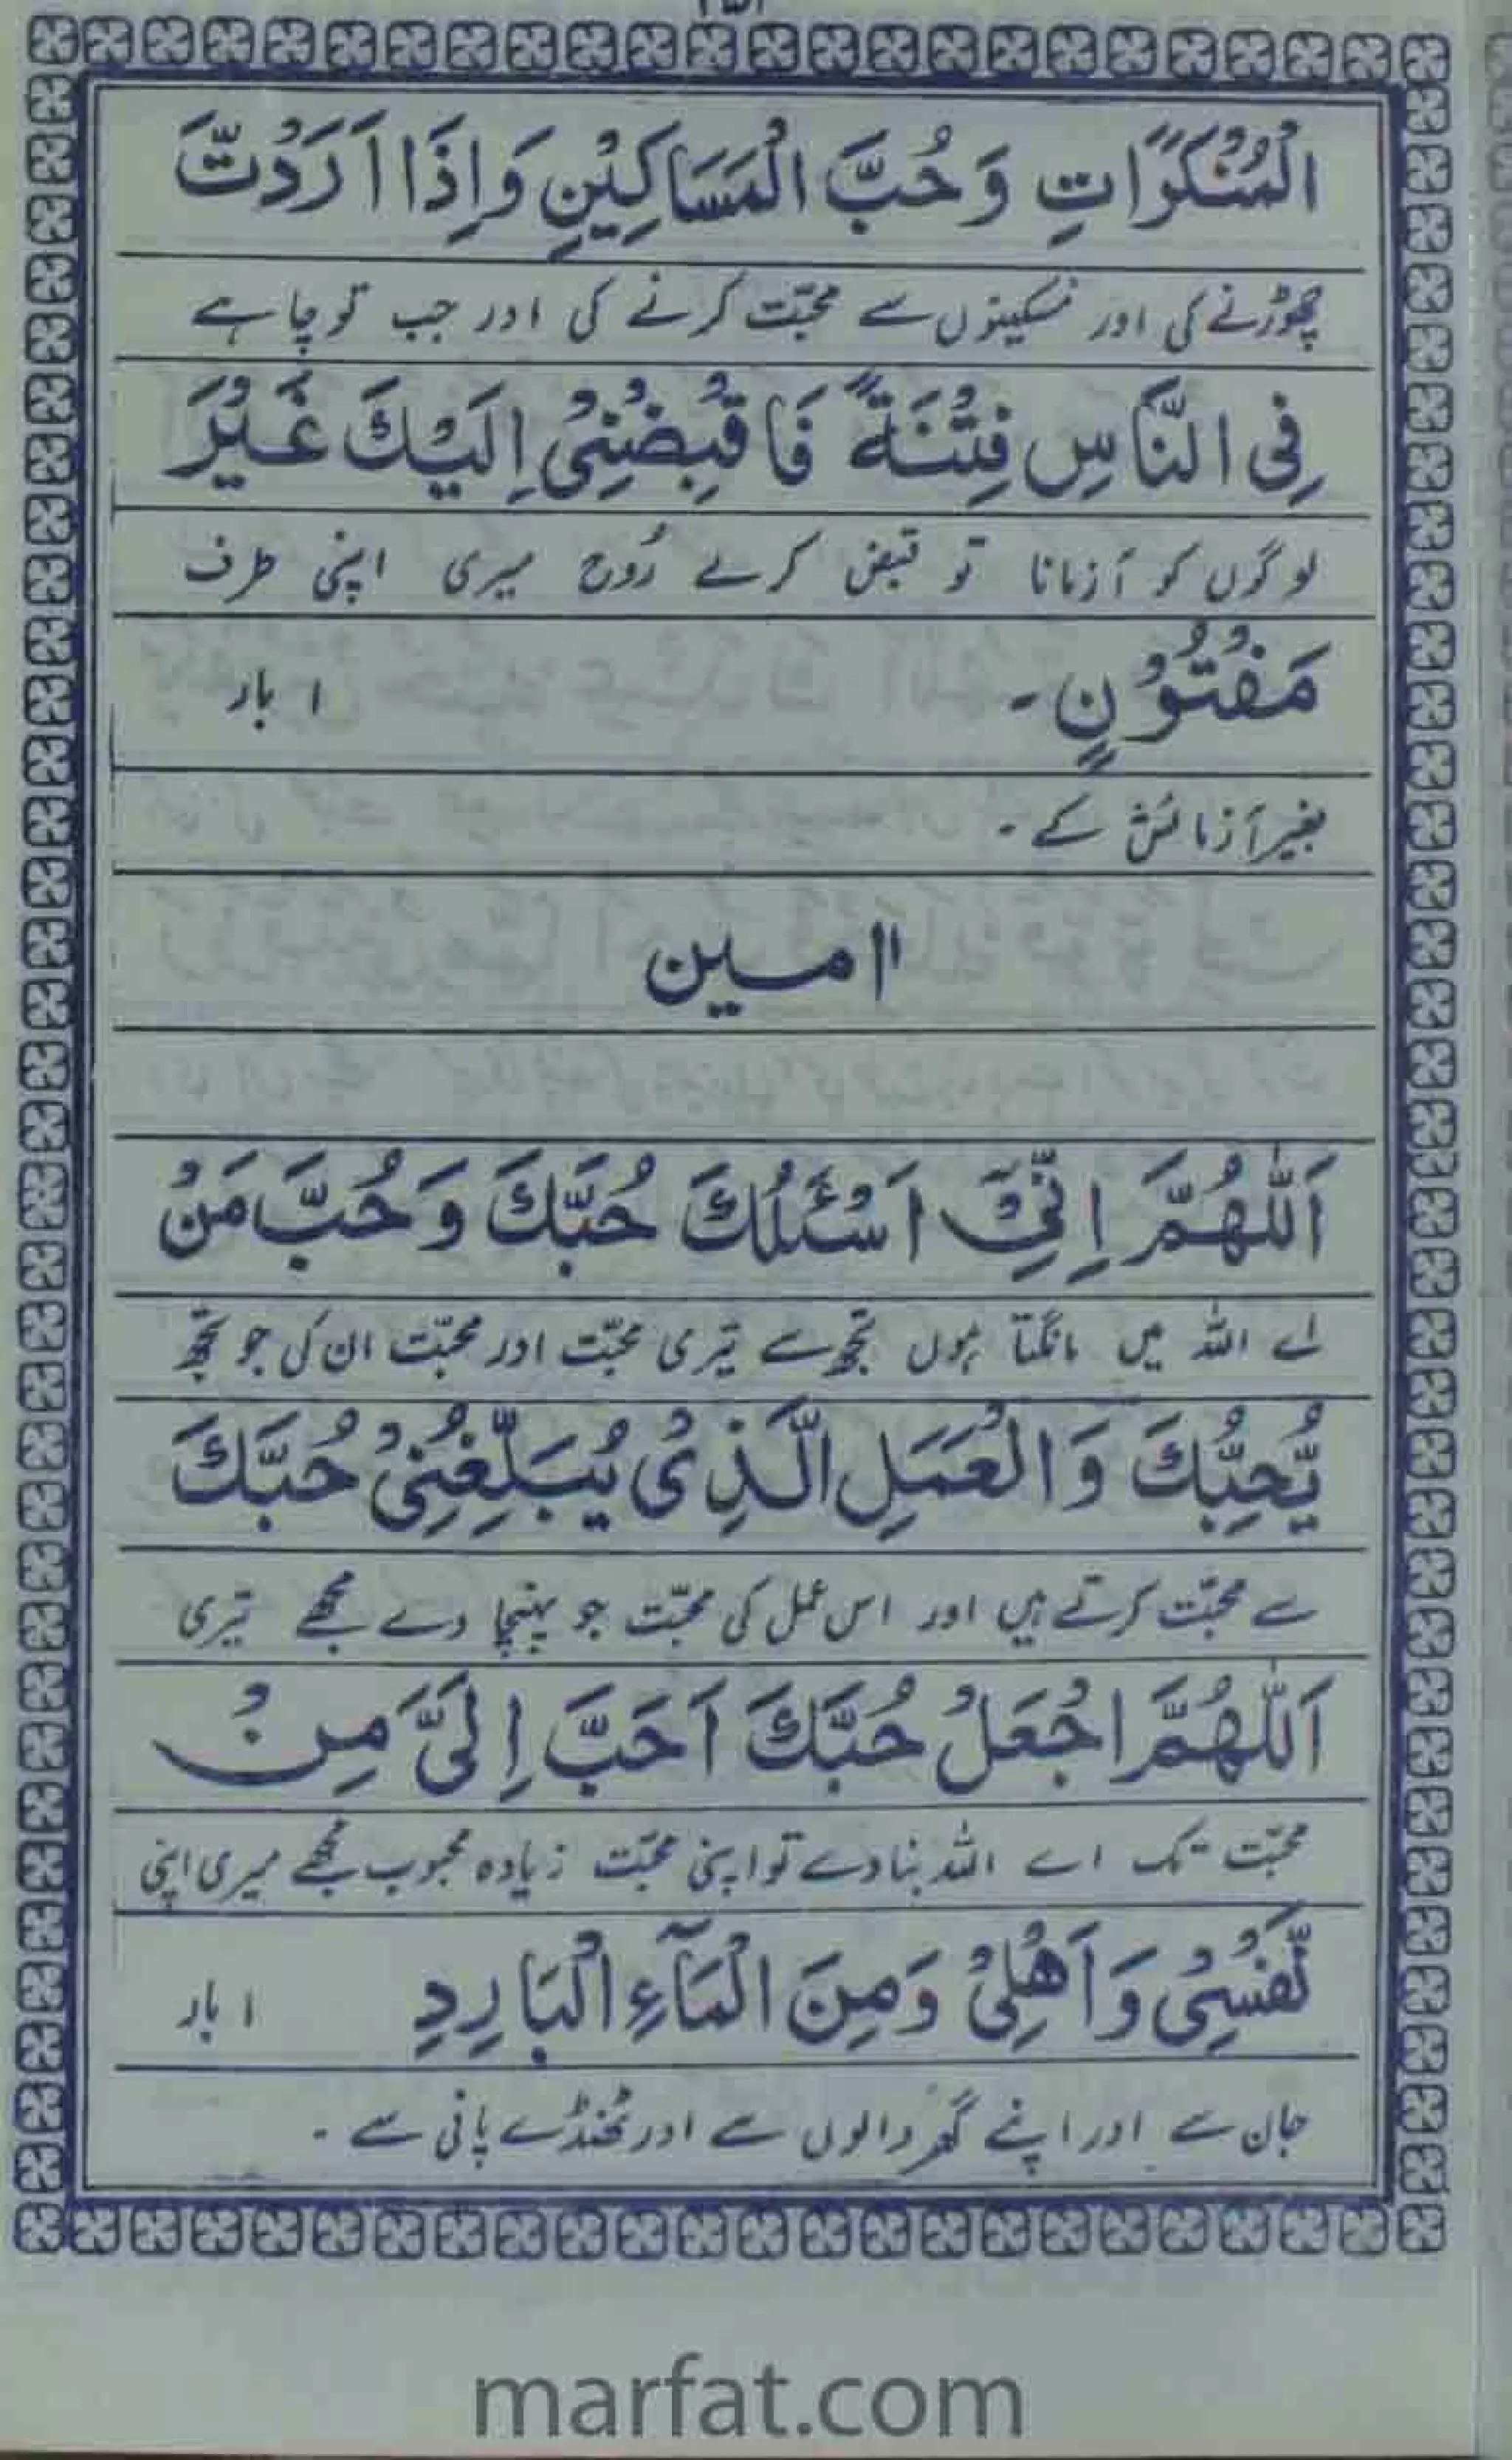 الْمُنْكَرَاتِ وَحُبَّ الْمَسَاكِيْنِ وَاِذَا اَرَدْتَّ
چھوڑنے کی اور مسکینوں سے محبّت کرنے کی اور جب تو چاہے
فِی النَّاسِ فِتْنَةً فَاقْبِضْنِیْ اِلَیْكَ غَیْرَ
لوگوں کو آزمانا تو قبض کرلے رُوح میری اپنی طرف
مَفْتُوْنٍ - ۱ بار
بغیر آزمائش کے -
اامین
اَللّٰهُمَّ اِنِّیْۤ اَسْئَلُكَ حُبَّكَ وَحُبَّ مَنْ
اے اللہ میں مانگتا ہوں تجھ سے تیری محبّت اور محبّت ان کی جو تجھ
یُّحِبُّكَ وَالْعَمَلِ الَّذِیْ یُبَلِّغُنِیْ حُبَّكَ
سے محبّت کرتے ہیں اور اس عمل کی محبّت جو پہنچا دے مجھے تیری
اَللّٰهُمَّ اجْعَلْ حُبَّكَ اَحَبَّ اِلَیَّ مِنْ
محبّت تک اے اللہ بنا دے تو اپنی محبّت زیادہ محبوب مجھے میری اپنی
نَّفْسِیْ وَاَهْلِیْ وَمِنَ الْمَآءِ الْبَارِدِ ۱ بار
جان سے اور اپنے گھر والوں سے اور ٹھنڈے پانی سے -
marfat.com